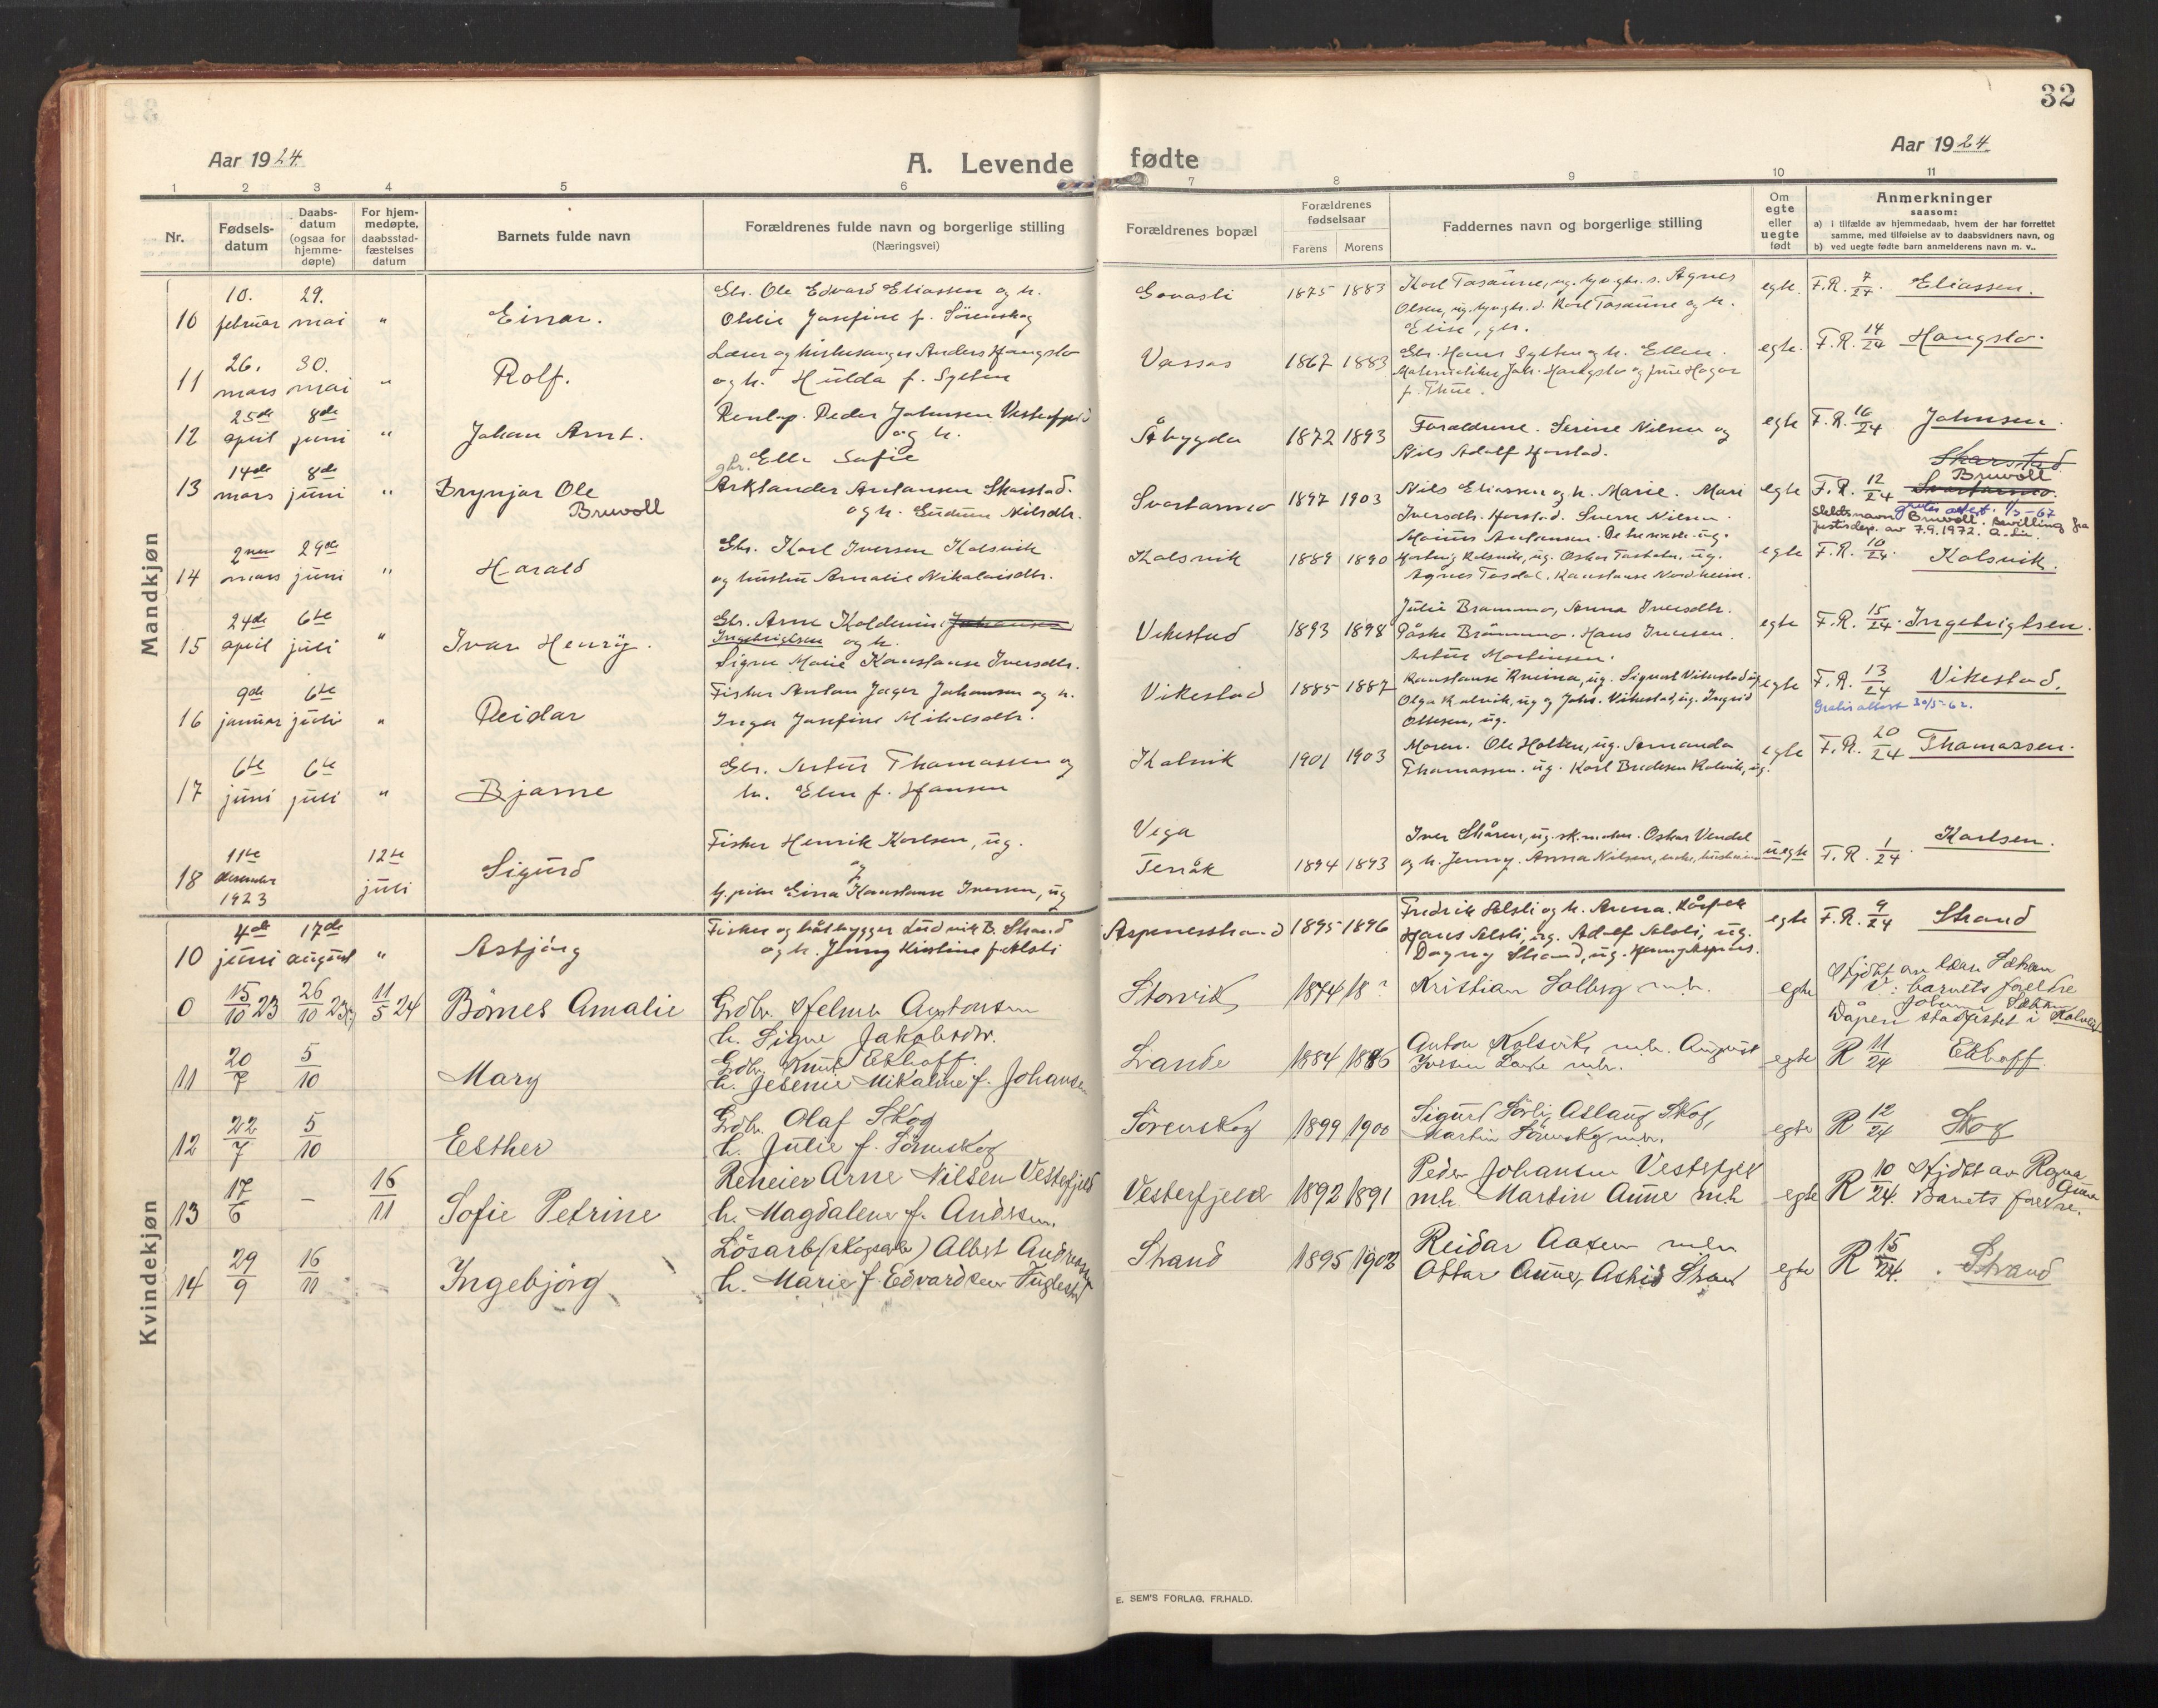 32
Aar 1924.
A. Levende fødte
Aar 1924
1 2 3 4 5 6 7 8 9 10 11
Nr.
Fødsels-
datum
Daabs-
datum
(ogsaa for
hjemme-
døpte)
For hjem-
medøpte,
daabsstad-
fæstelses
datum
Barnets fulde navn
Forældrenes fulde navn og borgerlige stilling
(Næringsvei)
Forældrenes bopæl
Forældrenes
fødselsaar
Farens Morens
Faddernes navn og borgerlige stilling
Om
egte
eller
uegte
født
Anmerkninger
saasom:
a) i tilfælde av hjemmedaab, hvem der har forrettet
samme, med tilføielse av to daabsvidners navn, og
b) ved uegte fødte barn anmelderens navn m. v..
Mandkjøn
10 10. februar 29. mai " Einar.
Gbr. Ole Edvard Eliassen og h.
Josefine f. Sörenskog
1875 1883
Karl Tosaune, ug. Agnes
Olsen, ug. Karl Tosaune og h.
Elise, gbr.
egte. F.R. 7/24. Eliassen.
11 26. mars 30. mai " Rolf.
Lærer og kirkesanger Anders Hongslo
og h. Hulda f. Sylten
Vassas 1867 1883
Gbr. Hans Sylten og h. Ellen.
Hongslo og frue Hagar
f. Thue.
egte. F.R. 14/24 Hongslo.
12 25de april 8de juni " Johan Arnt.
Renlap. Peder Johnsen Vesterfjeld
og h.
Ella Sofie
Åbygda 1872 1893
Foraeldrene. Serine Nilsen og
Nils Adolf Horstad.
egte F.R. 16/24 Johnsen.
13 14de mars 8de juni " Brynjar Ole
Bruvoll
gbr.
Arklander Antonsen Skarstad.
og h. Gudrun Nilsdtr.
Svartarmo 1897 1903
Nils Eliassen og h. Marie. Mari
Iversdtr. Horstad. Sverre Nilsen.
egte F.R. 12/24
Skarstad
Bruvoll
Svartarmo.
gratis attest. 1/3-67
Slektsnavn Bruvoll. Bevilling fra
Justisdep. av 7.9.1972.
14 2nen mars 29de juni " Harald
Gbr. Karl Iversen Kolsvik
og hustru Amalie Nikolaisdtr.
Kolsvik 1889 1890
Hartvig Kolsvik, ug. Oskar ug.
Agnes Tosdal. Konstanse Nordheim.
egte F.R. 10/24. Kolsvik.
15 24de april 6te juli " Ivar Henry.
Gbr. Arne Koldevin Johansen
Ingebrigtsen og h.
Signe Marie Konstanse Iversdtr.
Vikestad 1893 1898
Julie Brømmo, Anna Iversdtr.
Påske Brømmo. Hans Iversen.
Artur Martinsen.
egte F.R. 15/24. Ingebrigtsen.
16 9de januar 6te juli " Reidar
Fisker Anton Jæger Johansen og h.
Inga Josefine
Vikestad 1885 1887
Konstanse ug. Sigurd Vikestad ug
Olga Kolsvik, ug og Johs. Vikestad, ug. Ingrid
Ottesen, ug.
egte F.R. 13/24 Vikestad.
Gratis attest 30/5-62.
17 6te juni 6te juli " Bjarne
Gbr. Artur Thomassen og
h. Elen f. Hansen
Kolsvik 1901 1903
Moren. Ole Holten, ug. Amanda
Thomassen. ug. Karl Bredesen Kolsvik, ug.
egte F.R. 20/24 Thomassen.
18 11te desember 1923 12te juli Sigurd
Fisker Henrik Karlsen, ug.
og
Konstanse Iversen, ug
Vega
Terråk 1894 1893
Iver Skåren, ug. Oskar Vendel
og h. Jenny. Anna Nilsen, enke,
uegte F.R. 1/24. Karlsen.
Kvindekjøn
10 4de juni 17de august " Asbjörg
Fisker og båtbygger Ludvik B. Strand
og h. Jenny Kristine f. Aelsli
Aspenesstrand 1895 1896
Fredrik og h. Anna.
Hans ug. Adolf ug.
Dagny Strand, ug.
egte F.R. 9/24 Strand
0 15/10 23 26/10 23 11/5 24 Börnes Amalie
Grdbr. Helmer Antonsen
h. Signe Jakobsdtr.
Storvik 1874 18?
Kristian Solberg m.h.
egte
Hjdbt av
barnets foreldre
Dåpen stadfestet i Kolsvik
11 20/7 5/10 Mary
Grdbr. Knut Ekhoff.
h. Jesenie Mikaline f. Johansen
Lande 1884 1886
Anton Kolsvik m.h. August
Iversen Lande m.h.
egte R 11/24 Ekhoff
12 22/7 5/10 Esther
Grdbr. Olaf Skog
h. Julie f. Sörenskog
Sörenskog 1899 1900
Sigurd Sörli, Aslaug Skog,
Martin Sörenskog m.h.
egte R 12/24 Skog
13 17/6 - 16/11 Sofie Petrine
Reneier Arne Nilsen Vesterfjeld
h. Magdalene f. Andersen
Vesterfjeld 1892 1891
Peder Johansen Vesterfjell
m.h. Martin Aune m.h
egte R 10/24. Hjdbt av Ragna
Aune
Barnets forældre.
14 29/9 16/11 Ingebjörg
Lösarb. (skogsarb) Albert Andreassen
h. Marie f. Edvardsen Fuglestad
Strand 1895 1902
Reidar Aasen m.h
Ottar Aune, Astrid Strand
egte R 15/24. Strand
E. SEM'S FORLAG, FR.HALD.